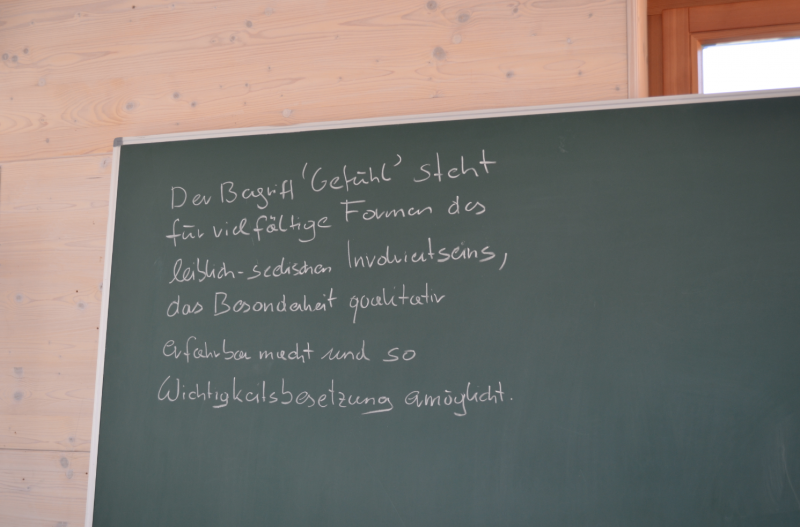 Der Begriff 'Gefühl' steht
für vielfältige Formen des
leiblich-seelischen Involviertseins,
das Besonderheit qualitativ
erfahrbar macht und so
Wichtigkeitsbesetzung ermöglicht.